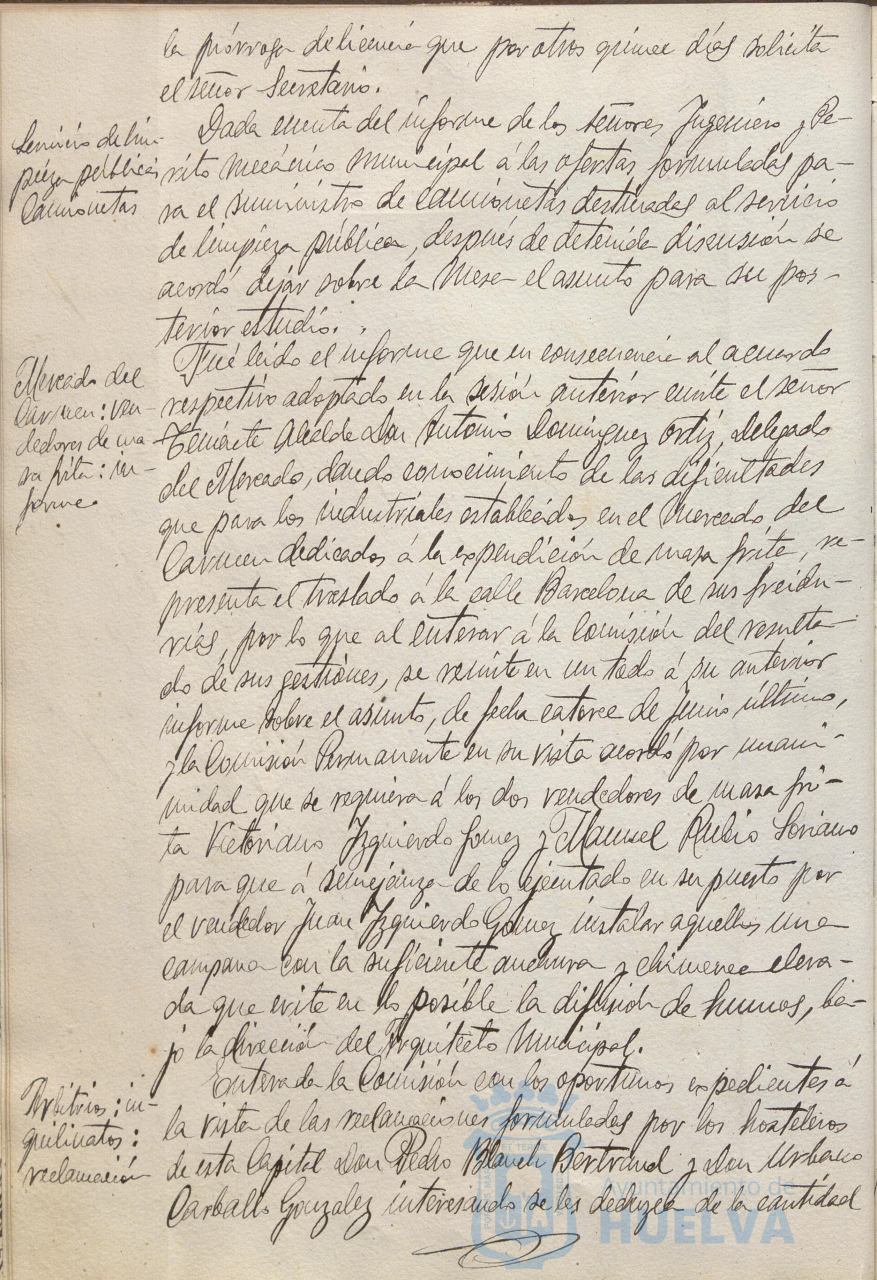 la prórroga de licencia que por otros quince días solicita
el señor Secretario.
Servicio de lim-
pieza pública
Camionetas
Dada cuenta del informe de los señores Ingeniero y Pe-
rito Mecánico Municipal á las ofertas formuladas pa-
ra el suministro de camionetas destinadas al servicio
de limpieza pública, después de detenida discusión se
acordó dejar sobre la Mesa el asunto para su pos-
terior estudio.
Mercado del
Carmen: ven-
dedores de ma-
sa frita: in-
forme
Fué leído el informe que en consecuencia al acuerdo
respectivo adoptado en la sesión anterior emite el señor
Teniente Alcalde Don Antonio Domínguez Ortiz, Delegado
del Mercado, dando conocimiento de las dificultades
que para los industriales establecidos en el Mercado del
Carmen dedicados á la expendición de masa frita, re-
presenta el traslado á la calle Barcelona de sus freidu-
rías, por lo que al enterar á la Comisión del resulta-
do de sus gestiones, se remite en un todo á su anterior
informe sobre el asunto, de fecha catorce de Junio último,
y la Comisión Permanente en su vista acordó por unani-
midad que se requiera á los dos vendedores de masa fri-
ta Victoriano Izquierdo Gomez y Manuel Rubio Soriano
para que á semejanza de lo ejecutado en su puesto por
el vendedor Juan Izquierdo Gomez instalar aquellos una
campana con la suficiente anchura y chimenea eleva-
da que evite en lo posible la difusión de humos, ba-
jo la dirección del Arquitecto Municipal.
Arbitrios: in-
quilinatos:
reclamación
Enterada la Comisión con los oportunos expedientes á
la vista de las reclamaciones formuladas por los hosteleros
de esta Capital Don Pedro Blanch Bertrand y Don Urbano
Carballo Gonzalez interesando se les deduzca de la cantidad
Ayuntamiento de
HUELVA